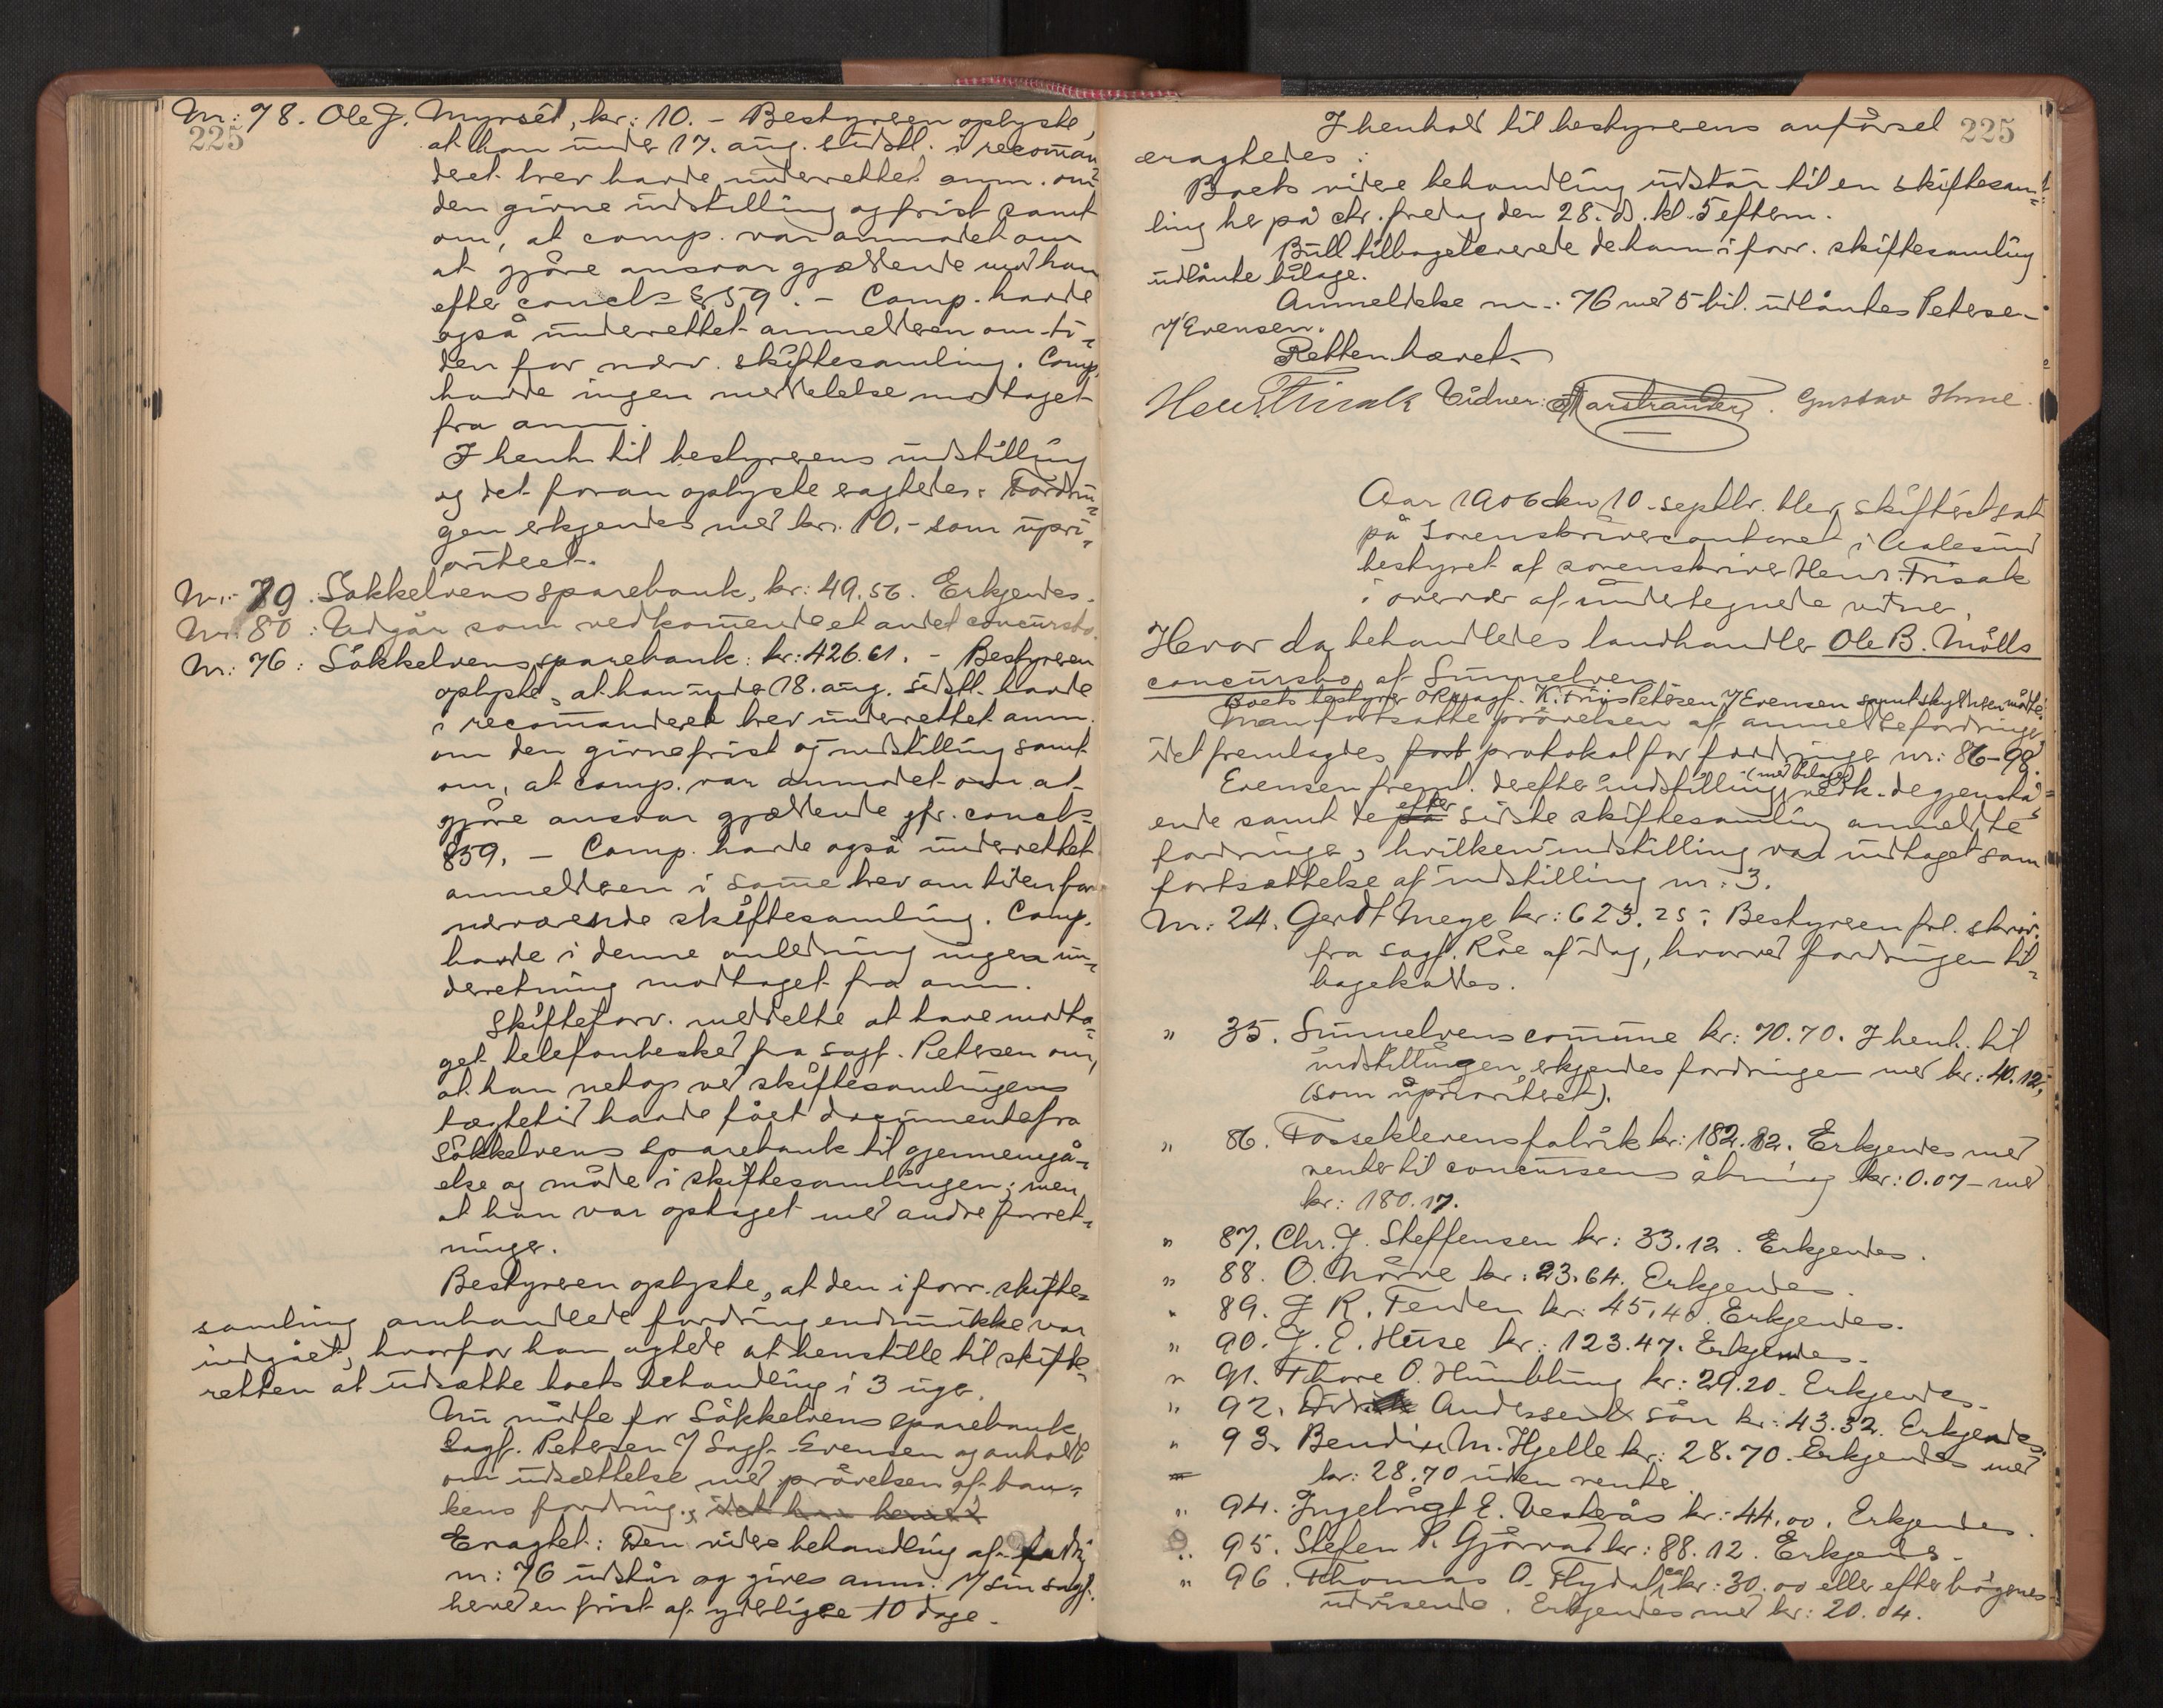 Nr: 78. Ole J. Myrsét, kr: 10. - Bestyreren oplyste,
225
at han under 17. aug. sidstl. i recoman
deret brev havde underrettet anm. om
den givne indstilling og frist samt
om, at comp. var anmodet om
at gjøre ansvar gjældende mod ham
efter concl= § 59. - Comp. havde
også underrettet anmelderen om ti=
den for nærv. skiftesamling. Comp.
havde ingen meddelelse modtaget
fra anm.
I henh. til bestyrerens indstilling
og det foran oplyste eragtedes: Fordrin=
gen erkjendes med kr. 10.- som upri=
oriteet.
Nr: 79. Søkkelvens sparebank, kr: 49.56. Erkjendes.
Nr: 80: Udgår som vedkommende et andet concursbo.
Nr: 76: Søkkelvens sparebank: kr: 426.61. - Bestyreren
oplyste, at han under 18. aug. sidstl. havde
i recomanderet brev underrettet anm.
om den givne frist og indstilling samt
om, at comp. var anmodet om at
gjøre ansvar gjældende jfr. concl=
§59. - Comp. havde også underrettet
anmelderen i samme brev om tiden for
nærværende skiftesamling. Comp.
havde i denne anledning ingen un=
derretning modtaget fra anm.
Skifteforv. meddelte at have modta=
get telefonbesked fra sagf. Petersen om,
at han netop ved skiftesamlingens
tægtetid havde fået documenter fra
Søkkelvens sparebank til gjennemgå=
else og møde i skiftesamlingen; men
at han var optaget med andre forret=
ninger.
Bestyreren oplyste, at den i forr. skifte=
samling omhandlede fordring endnu ikke var
indgået, hvorfor han agtede at henstille til skifte=
retten at udsætte boets behandling i 3 uger.
Nu mødte for Søkkelvens sparebank
Sagf. Petersen v/ Sagf. Evensen og anholdt
om udsættelse med prøvelsen af ban=
kens fordring, idet han herved
Eragtet: Den videre behandling af fordr.
nr: 76 udstår og gives anm. v/ sin sagf.
herved en frist af yderligere 10 dage.
I henhold til bestyrerens anførsel
225
eragtedes:
Boets videre behandling udstår til en skiftesam=
ling her på ctr. fredag den 28. ds. kl. 5 efterm.
Bull tilbageleverede de ham i forr. skiftesamling
udlånte bilage.
Anmeldelse nr: 76 med 5 bil. udlåntes Petersen
v/ Evensen.
Retten hævet.
Henr. Frisak Vidner: Marstrander. Gustav Hme.
Aar 1906 den 10. septbr. blev skifteret sat
på Sorenskrivercontoret i Aalesund
bestyret af sorenskriver Henr. Frisak
i overvær af undertegnede vidner.
Hvor da behandledes landhandler Ole B. Mølls
concursbo af Sunnelven.
Boets bestyrer ORsagf. K. Friis Petersen v/ Evensen samt skyldneren mødte.
Man fortsatte prøvelsen af anmeldte fordringer
idet fremlagdes fort protokol for fordringer nr: 86-98.
Evensen freml. derefter indstilling (med bilage) vedk. de gjenstå=
ende samt de på efter sidste skiftesamling anmeldte
fordringer, hvilken indstilling var indtaget som
fortsættelse af indstilling nr: 3.
Nr: 24. Gerdt Meyer kr: 623.25: Bestyreren frl. skriv.
fra sagf. Råe af idag, hvorved fordringen til=
bagekaldes.
" 35. Sunnelvens comune kr: 70.70. I henh. til
indstillingen erkjendes fordringen med kr: 40.12,
(som uprioriteret).
" 86. Fosseklevens fabrik kr: 182.82. Erkjendes med
renter til concursens åbning kr: 0.07 - med
kr: 180.17.
" 87. Chr. J. Steffensen kr: 33.12. Erkjendes.
" 88. O. Nørve kr: 23.64. Erkjendes.
" 89. J. R. Tenden kr: 45.40. Erkjendes.
" 90. J. E. Huse kr: 123.47. Erkjendes.
" 91. Thore O. Humblung kr: 29.20. Erkjendes.
" 92. Didrik Andersen & søn kr: 43.32. Erkjendes.
" 93. Bendix M. Hjelle kr: 28.70. Erkjendes med
kr: 28.70 uden rente.
" 94. Ingebrigt E. Vesterås kr: 44.00. Erkjendes.
" 95. Stefen P. Gjørvad kr: 88.12. Erkjendes.
" 96. Thomas O. Flydal, ca kr: 30.00 eller efter bøgernes
udvisende. Erkjendes med kr: 20.04.